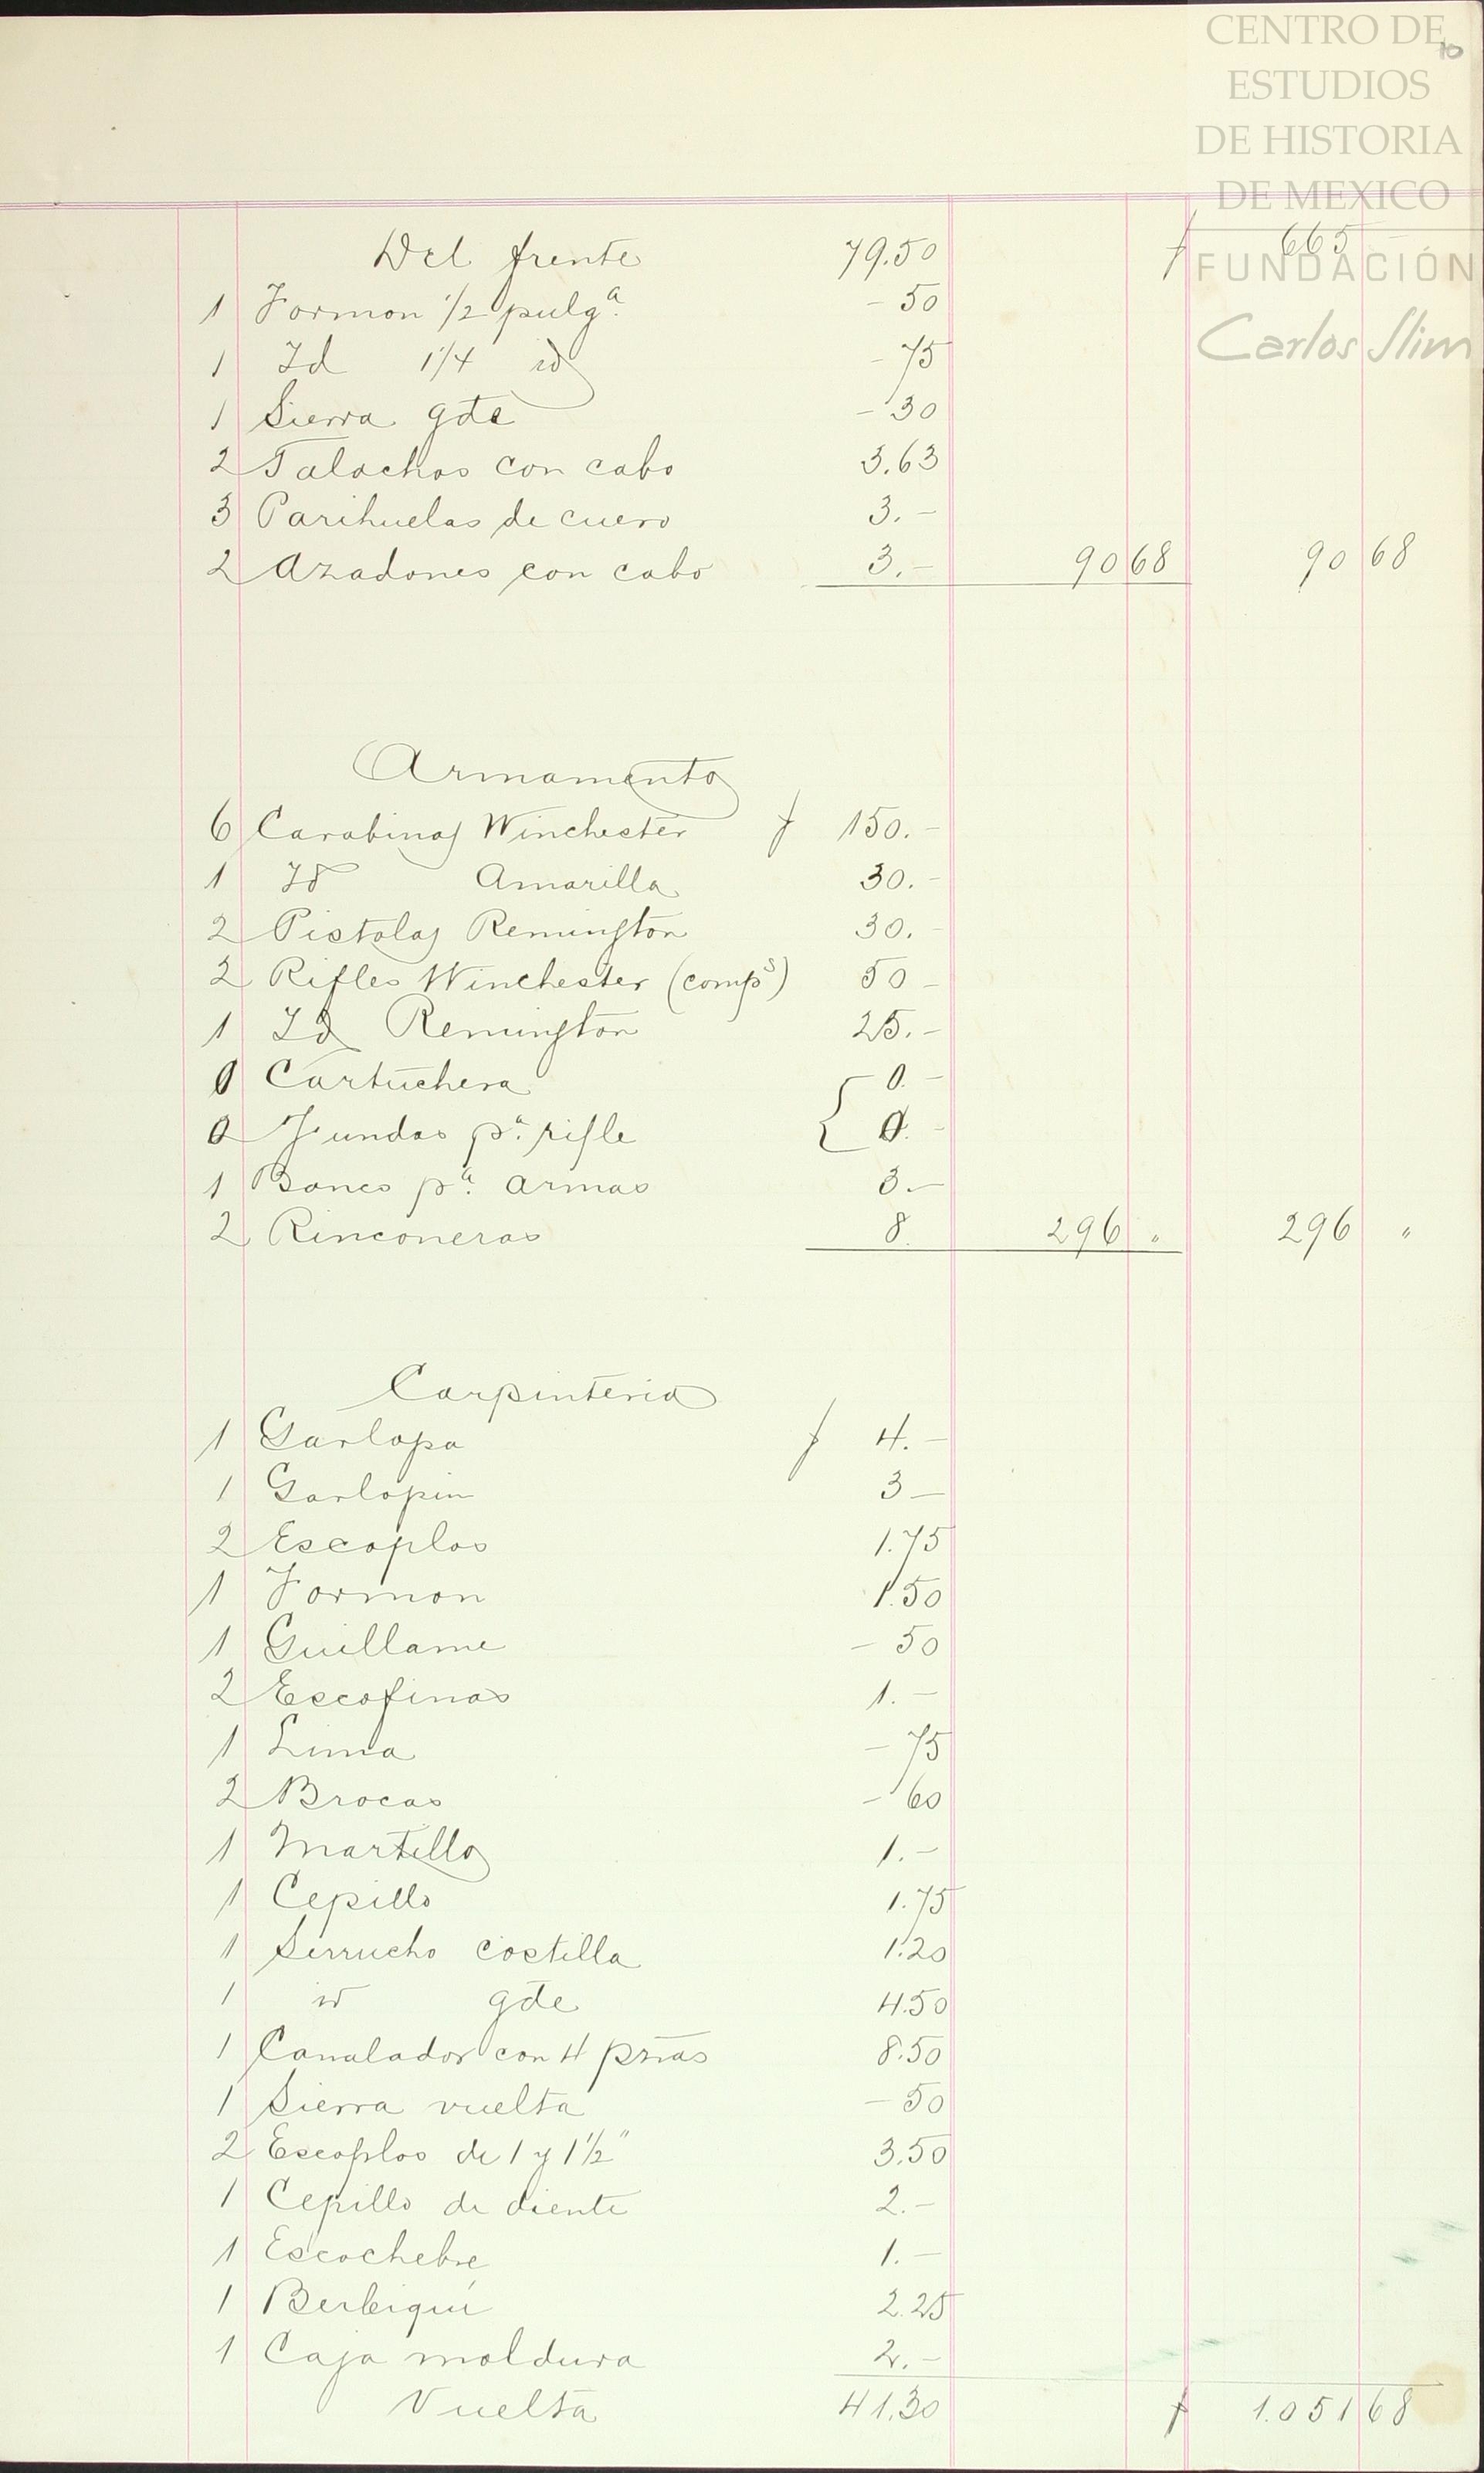 CENTRO DE
ESTUDIOS
DE HISTORIA
DE MEXICO
FUNDACIÓN
Carlos Slim
10
Del frente 79.50 $ 665 –
1 Formon 1/2 pulgª. – 50
1 Id 1 1/4 id – 75
1 Sierra gde – 30
2 Talachos con cabo 3.63
3 Parihuelas de cuero 3. –
2 Azadones con cabo 3. – 90 68 90 68
Armamento
6 Carabinas Winchester $ 150. –
1 Id Amarilla 30. –
2 Pistolas Remington 30. –
2 Rifles Winchester (comps) 50 –
1 Id Remington 25. –
0 Cartuchera 0. –
0 Fundas pª. rifle 0. –
1 Banco pª. armas 3. –
2 Rinconeras 8. 296 " 296 "
Carpinteria
1 Garlopa $ 4. –
1 Garlopin 3 –
2 Escoplos 1.75
1 Formon 1.50
1 Guillame – 50
2 Escofinas 1. –
1 Lima – 75
2 Brocas – 60
1 Martillo 1. –
1 Cepillo 1.75
1 Serrucho costilla 1.20
1 id gde 4.50
1 Canalador con 4 pzas 8.50
1 Sierra vuelta – 50
2 Escoplos de 1 y 1 1/2" 3.50
1 Cepillo de diente 2. –
1 Escochebre 1. –
1 Berbiqui 2.25
1 Caja moldura 2. –
Vuelta 41.30 $ 1.051 68